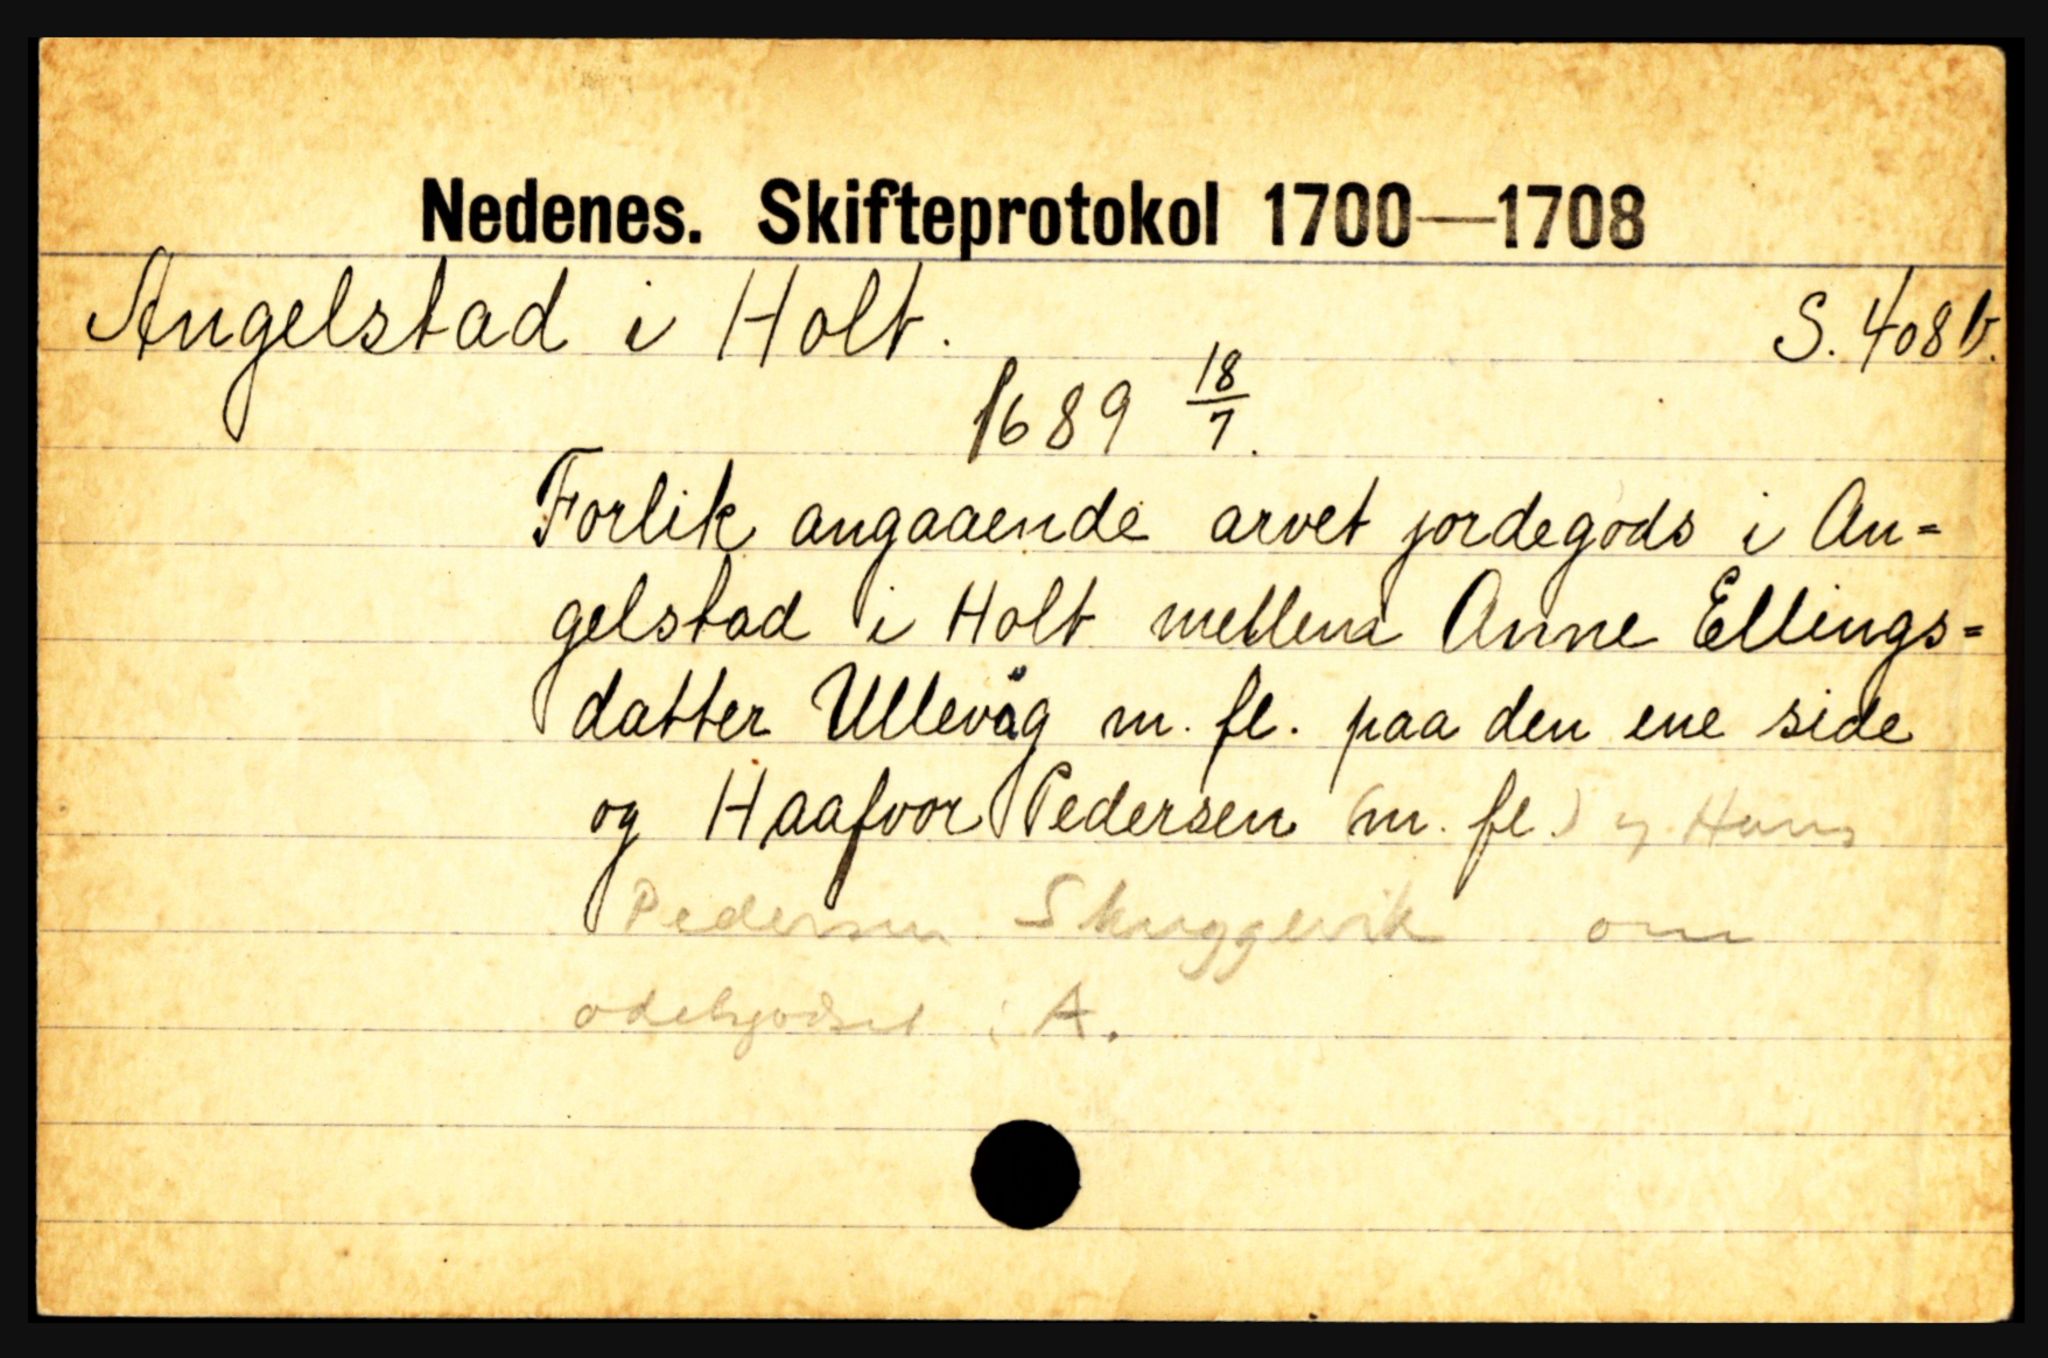 Nedenes. Skifteprotokol 1700—1708
Angelstad i Holt. S. 408 b.
1689 18/7.
Forlik angaaende arvet jordegods i An=
gelstad i Holt mellem Anne Ellings=
datter Ullevåg m. fl. paa den ene side
og Haafvor Pedersen (m. fl.) og Hans
Pedersen Skuggevik om
odelsgodset i A.